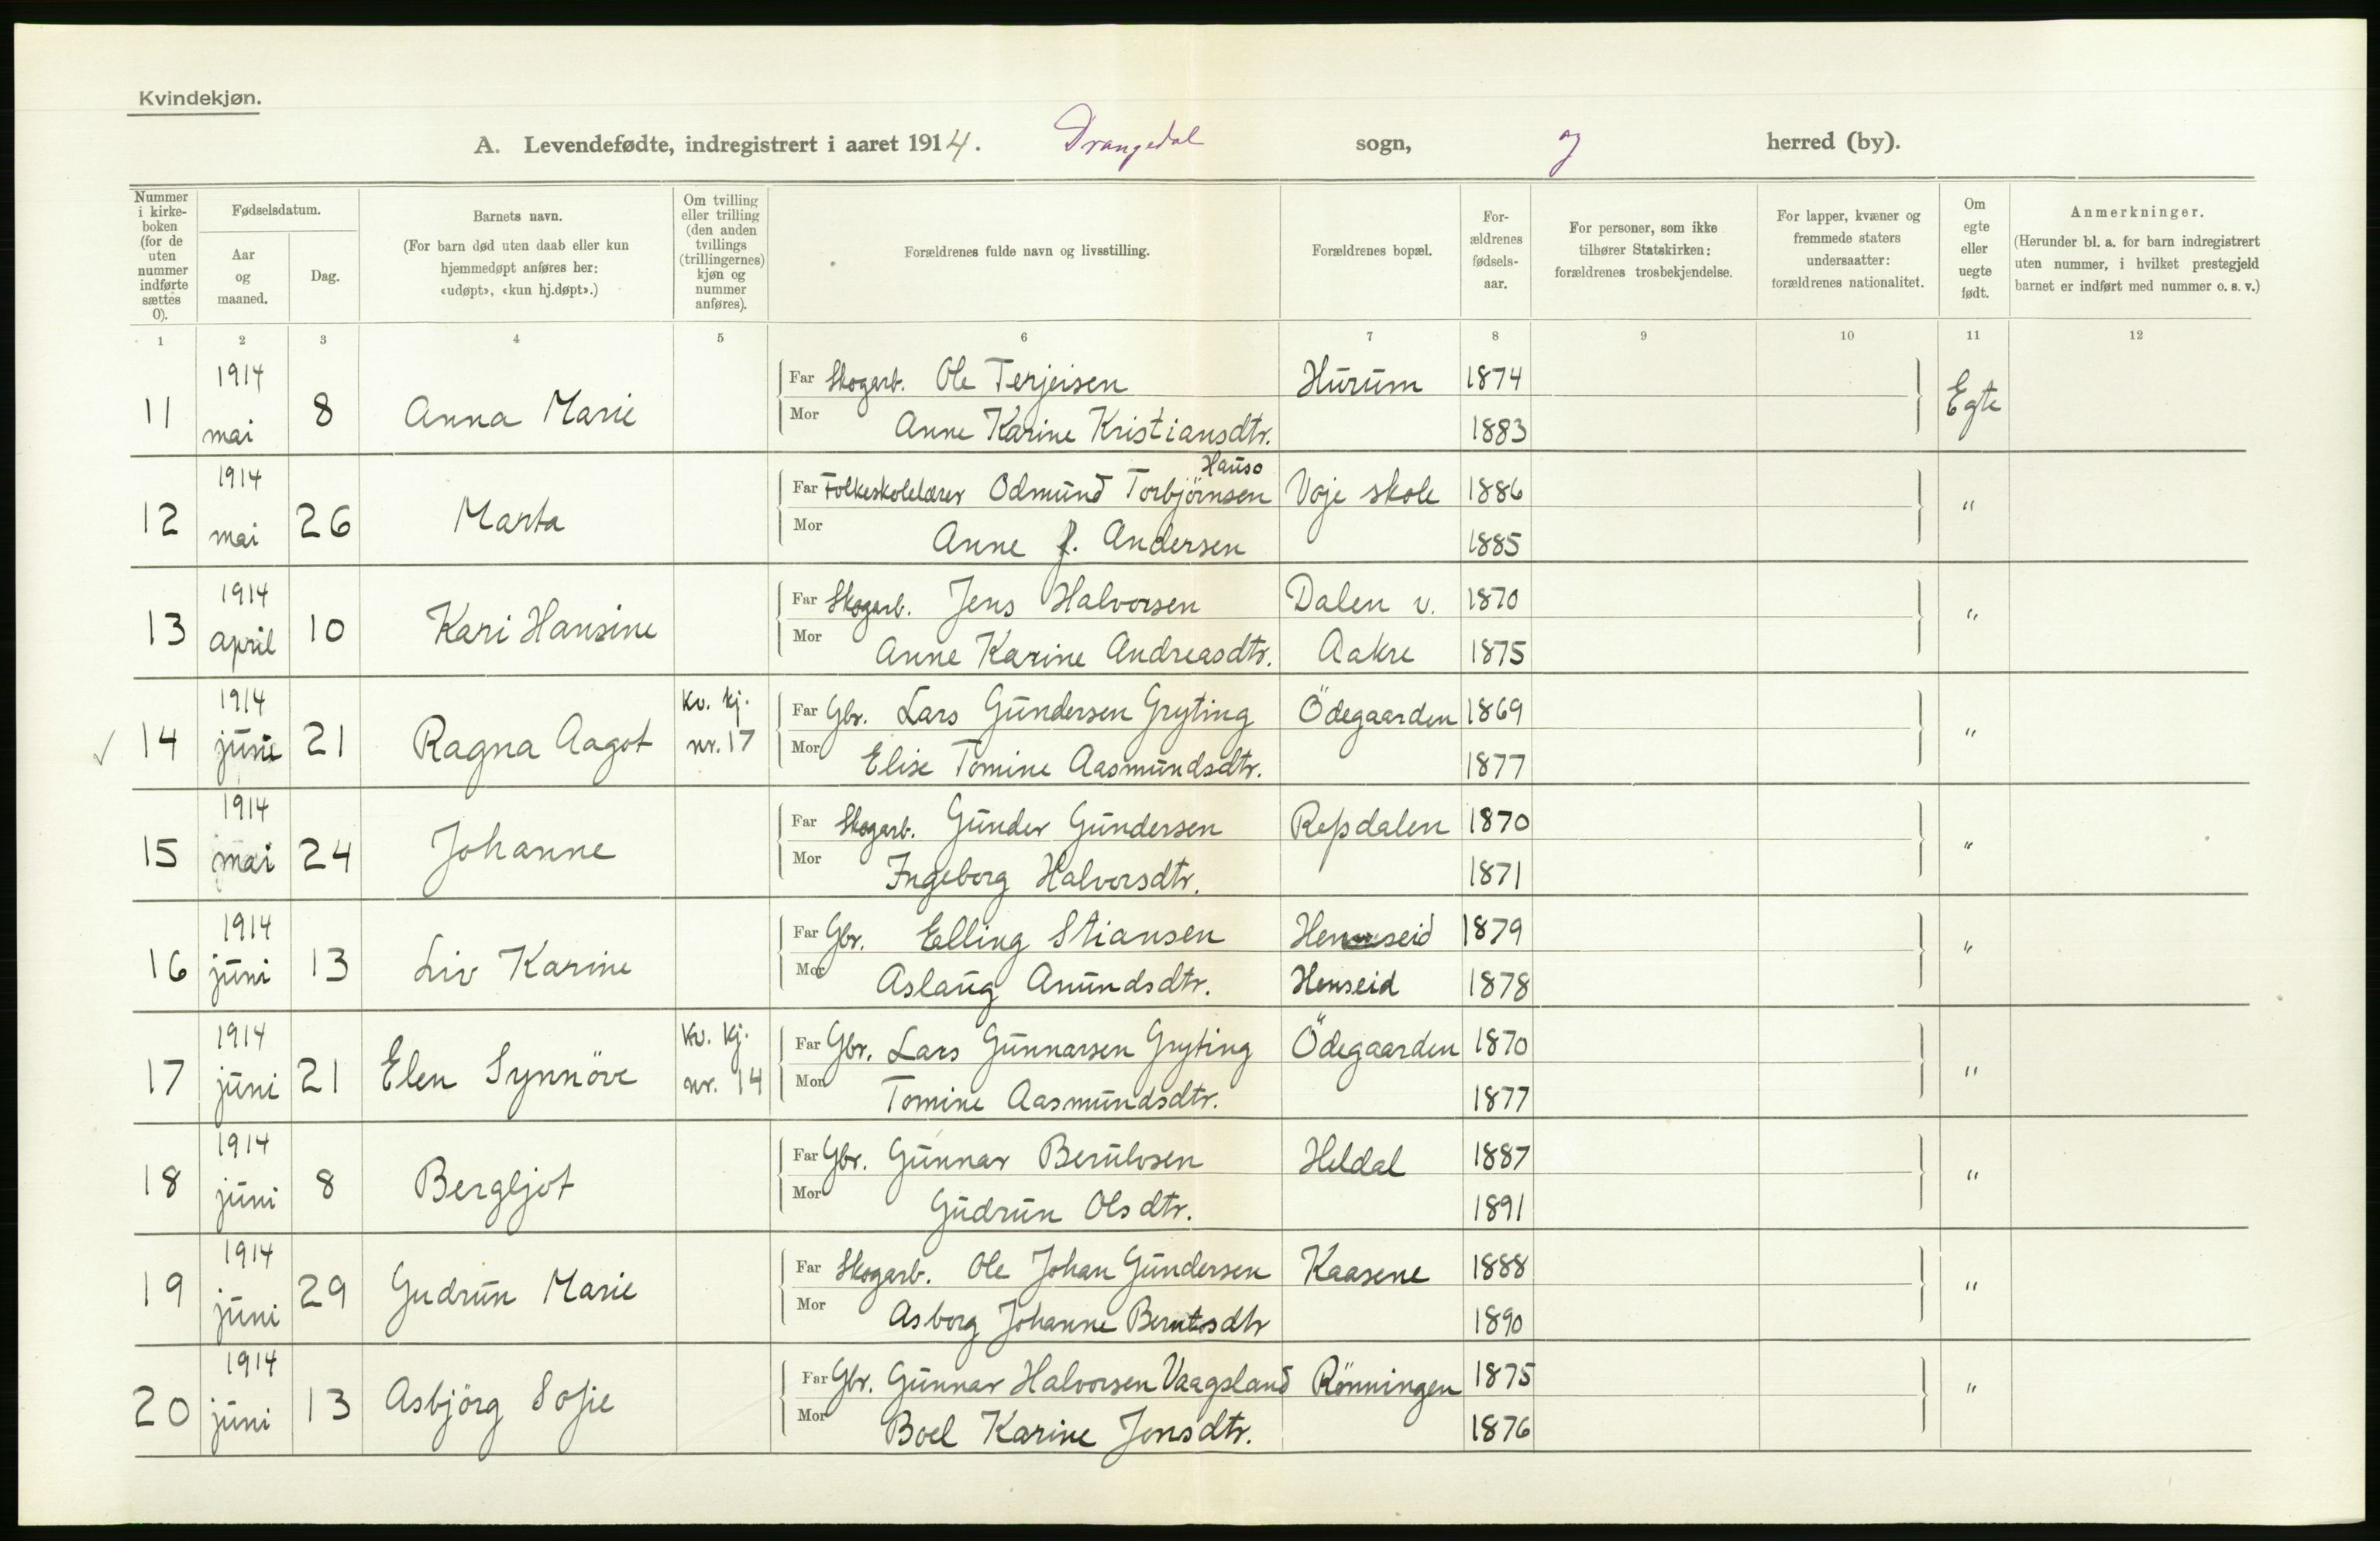 Kvindekjøn.
A. Levendefødte, indregistrert i aaret 1914. Drangedal sogn, og herred (by).
Nummer i kirke-boken (for de uten nummer indførte sættes 0).
Fødselsdatum.
Aar og maaned.
Dag.
Barnets navn.
(For barn død uten daab eller kun hjemmedøpt anføres her: «udøpt», «kun hj.døpt».)
Om tvilling eller trilling (den anden tvillings (trillingernes) kjøn og nummer anføres).
Forældrenes fulde navn og livsstilling.
Forældrenes bopæl.
For-ældrenes fødsels-aar.
For personer, som ikke tilhører Statskirken: forældrenes trosbekjendelse.
For lapper, kvæner og fremmede staters undersaatter: forældrenes nationalitet.
Om egte eller uegte født.
Anmerkninger.
(Herunder bl. a. for barn indregistrert uten nummer, i hvilket prestegjeld barnet er indført med nummer o. s. v.)
1 2 3 4 5 6 7 8 9 10 11 12
11 1914 mai 8 Anna Marie Far Skogarb. Ole Terjeisen Hurum 1874 Egte
Mor Anne Karine Kristiansdtr. 1883
12 1914 mai 26 Marta Far Folkeskolelærer Odmund Torbjörnsen Hauso Voje skole 1886 "
Mor Anne f. Andersen 1885
13 1914 april 10 Kari Hansine Far Skogarb. Jens Halvorsen Dalen v. 1870 "
Mor Anne Karine Andreasdtr. Aakre 1875
✓ 14 1914 juni 21 Ragna Aagot Kv. kj. nr. 17 Far Gbr. Lars Gundersen Gryting Ödegaarden 1869 "
Mor Elise Tomine Aasmundsdtr. 1877
15 1914 mai 24 Johanne Far Skogarb. Gunder Gundersen Repsdalen 1870 "
Mor Ingeborg Halvorsdtr. 1871
16 1914 juni 13 Liv Karine Far Gbr. Elling Stiansen 1879 "
Mor Aslaug Anundsdtr. Henseid 1878
17 1914 juni 21 Elen Synnöve Kv. kj. nr. 14 Far Gbr. Lars Gunnarsen Gryting Ödegaarden 1870 "
Mor Tomine Aasmundsdtr. 1877
18 1914 juni 8 Bergljot Far Gbr. Gunnar Berulvsen Heldal 1887 "
Mor Gudrun Olsdtr. 1891
19 1914 juni 29 Gudrun Marie Far Skogarb. Ole Johan Gundersen Kaasene 1888 "
Mor Asborg Johanne Berntsdtr 1890
20 1914 juni 13 Asbjörg Sofie Far Gbr. Gunnar Halvorsen Vaagsland Rönningen 1875 "
Mor Boel Karine Jensdtr. 1876